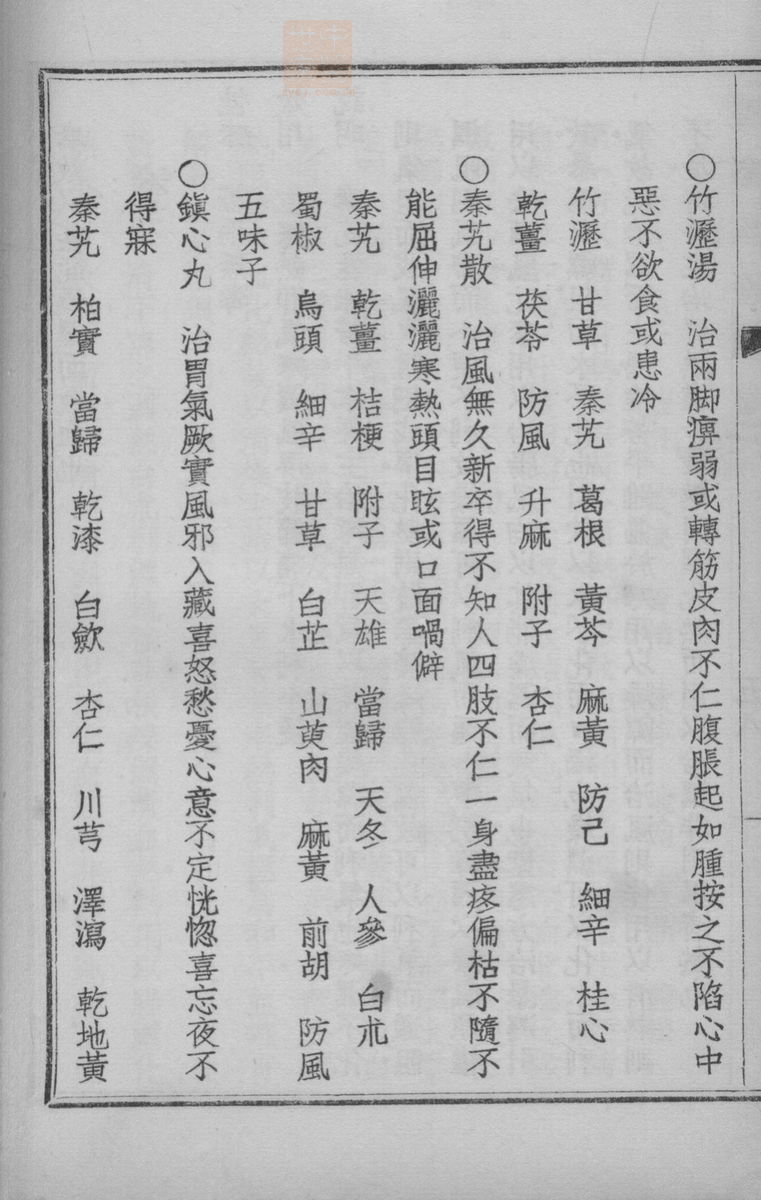 ○竹瀝湯　治兩脚痹弱或轉筋皮肉不仁腹脹起如腫按之不陷心中
惡不欲食或患冷
竹瀝　甘草　秦艽　葛根　黃芩　麻黃　防己　細辛　桂心
乾薑　茯苓　防風　升麻　附子　杏仁
○秦艽散　治風無久新卒得不知人四肢不仁一身盡疼偏枯不隨不
能屈伸灑灑寒熱頭目眩或口面喎僻
秦艽　乾薑　桔梗　附子　天雄　當歸　天冬　人參　白朮
蜀椒　烏頭　細辛　甘草　白芷　山萸肉　麻黃　前胡　防風
五味子
○鎮心丸　治胃氣厥實風邪入藏喜怒愁憂心意不定恍惚喜忘夜不
得寐
秦艽　柏實　當歸　乾漆　白歛　杏仁　川芎　澤瀉　乾地黃